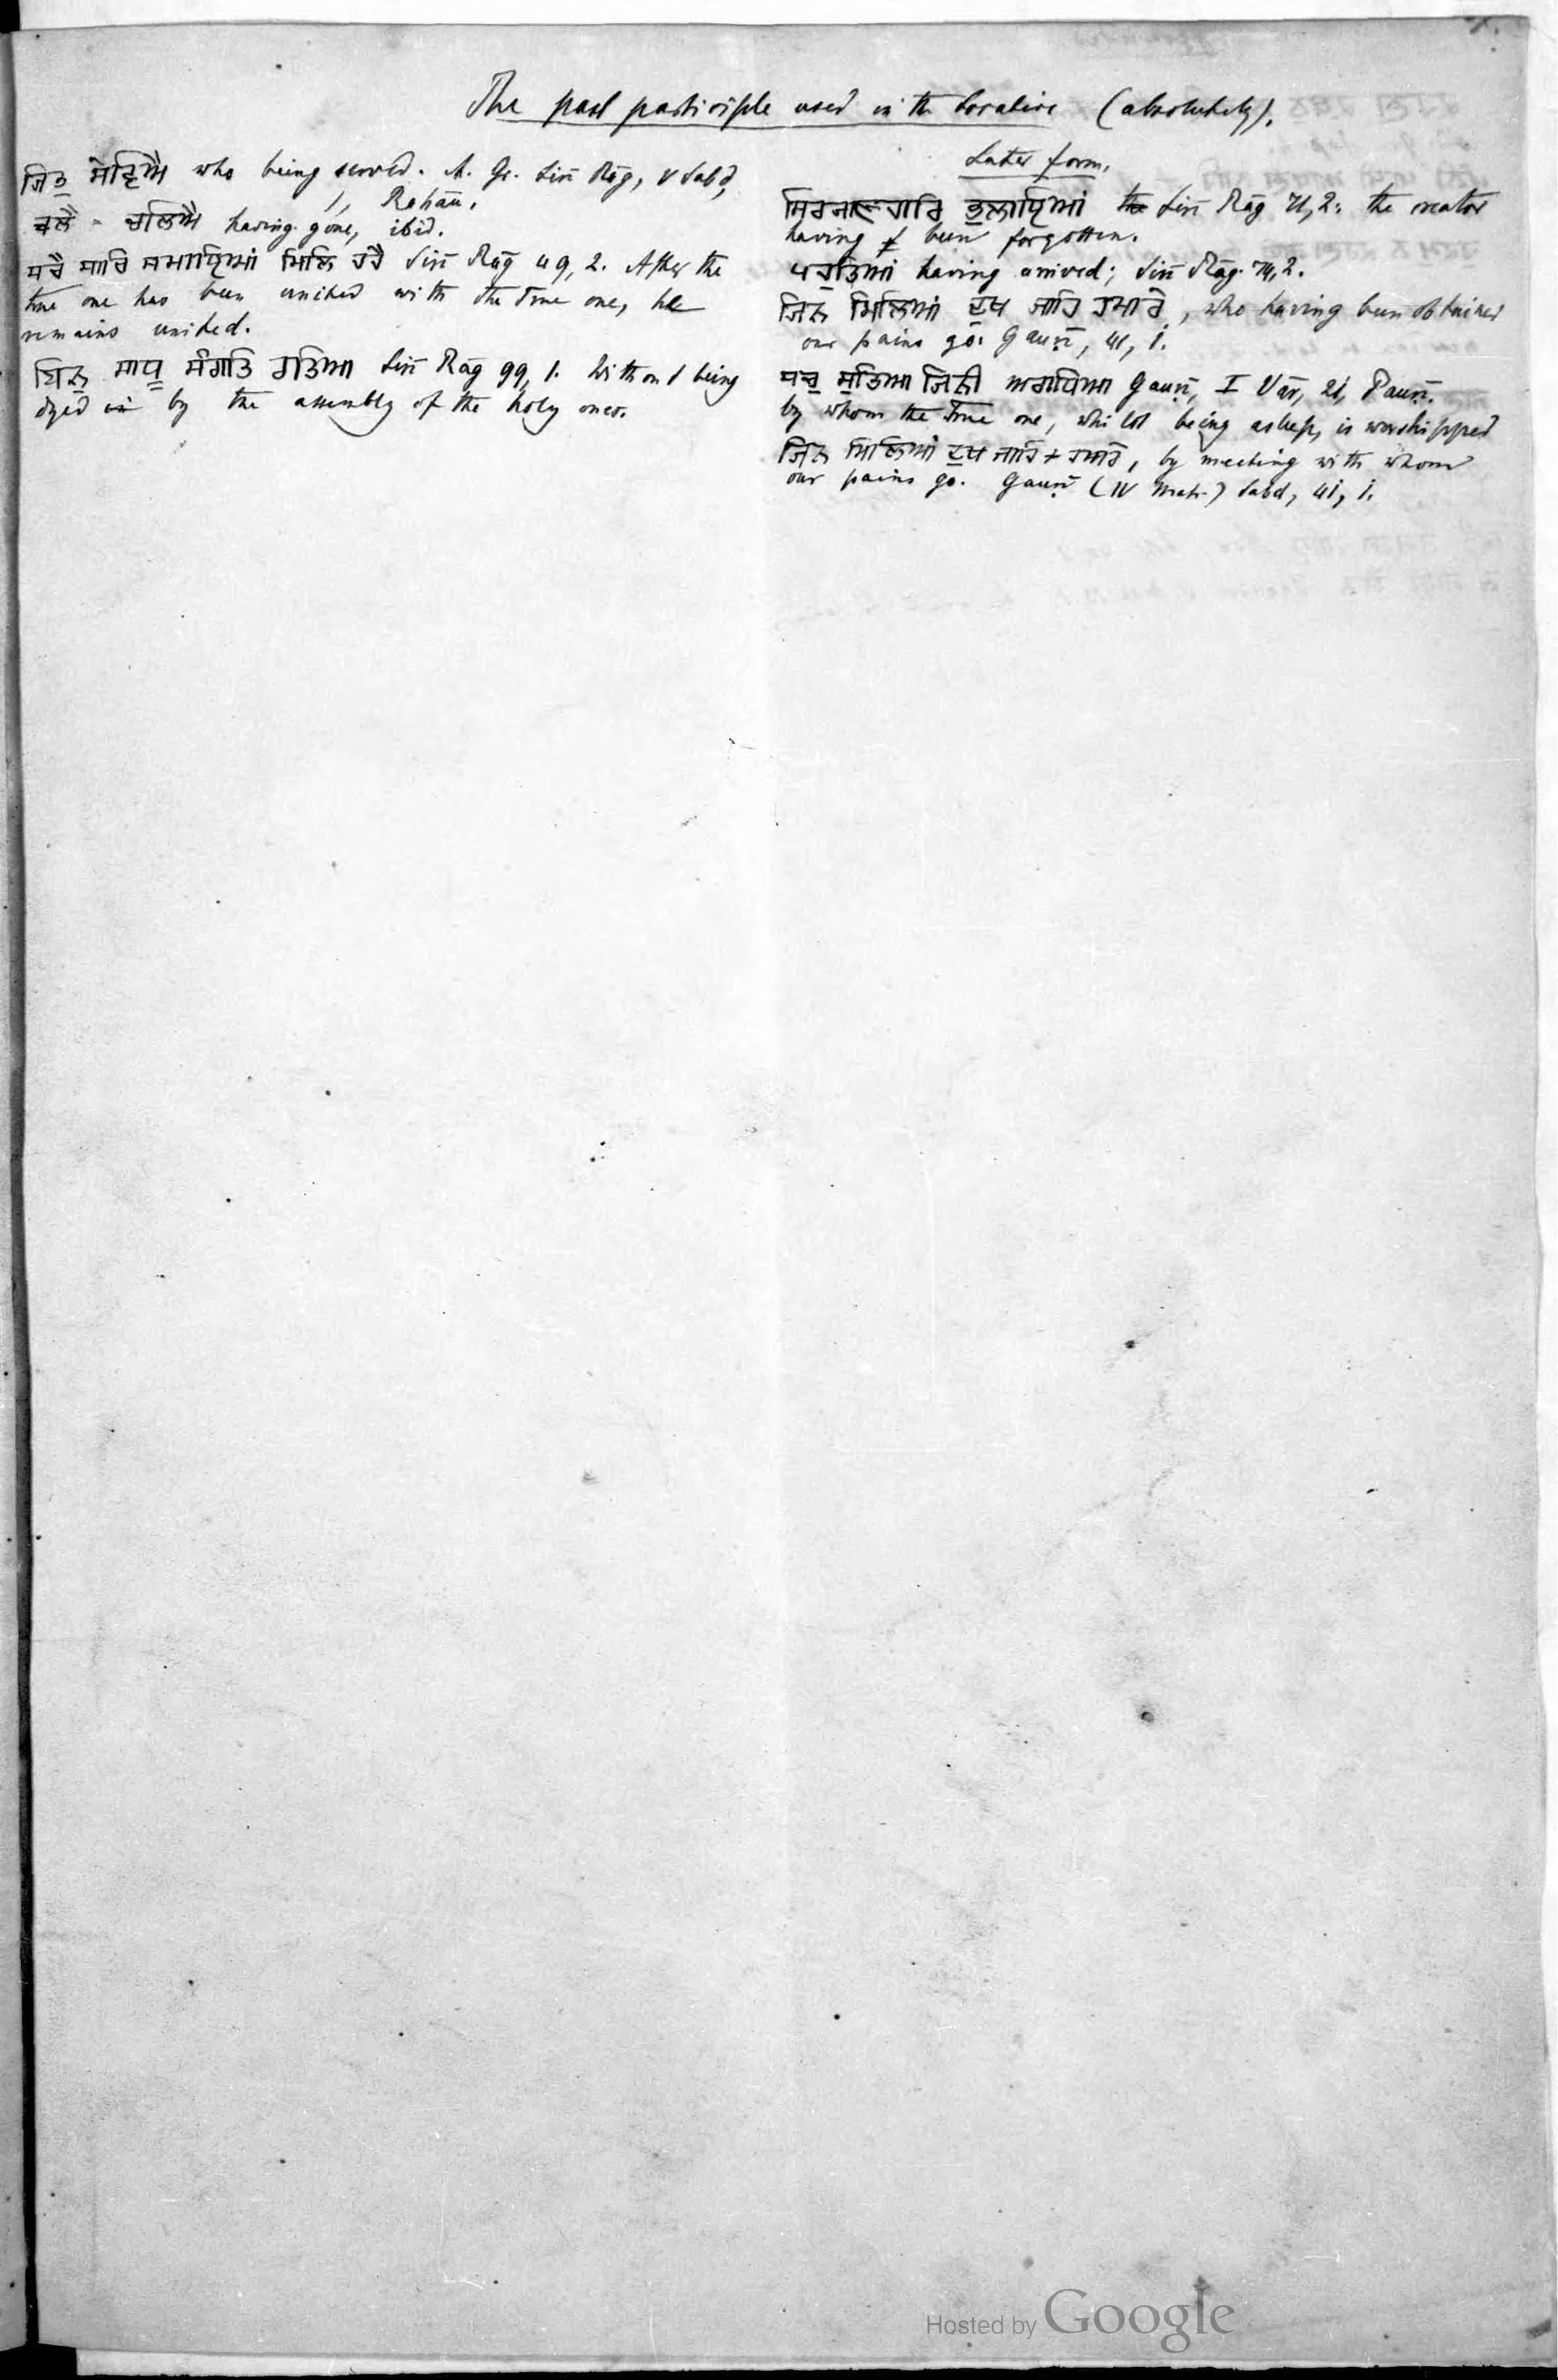 The past participle used in the Locative (absolutely).
ਜਿਤੁ ਸੇਵਿਐ who being served. A. Gr. Sirī Rāg, V Sabd,
1, Rahāu.
ਚਲੈ - ਚਲਿਐ having gone, ibid.
ਸਚੈ ਸਾਚਿ ਸਮਾਇਆਂ ਮਿਲਿ ਰਹੈ Sirī Rāg 49, 2. After the
true one has been united with the True one, he
remains united.
ਬਿਨੁ ਸਾਧੂ ਸੰਗਤਿ ਰਤਿਆ Sirī Rāg 99, 1. Without being
dyed in by the assembly of the holy ones.
Later form.
ਸਿਰਜਣਹਾਰਿ ਭੁਲਾਇਆਂ the Sirī Rāg 71, 2: the creator
having f been forgotten.
ਪਹੁਤਿਆਂ having arrived; Sirī Rāg. 74, 2.
ਜਿਨ ਮਿਲਿਆਂ ਦੁਖ ਜਾਹਿ ਹਮਾਰੇ, who having been obtained
our pains go: Gauṛī, 41, 1.
ਸਚੁ ਸੁਤਿਆ ਜਿਨੀ ਅਰਾਧਿਆ Gauṛī, I Vār, 21, Pauṛī.
by whom the True one, whilst being asleep, is worshipped
ਜਿਨ ਮਿਲਿਆਂ ਦੁਖ ਜਾਹਿ + ਹਮਾਰੇ, by meeting with whom
our pains go. Gauṛī (IV Mah.) Sabd, 41, 1.
Hosted by Google